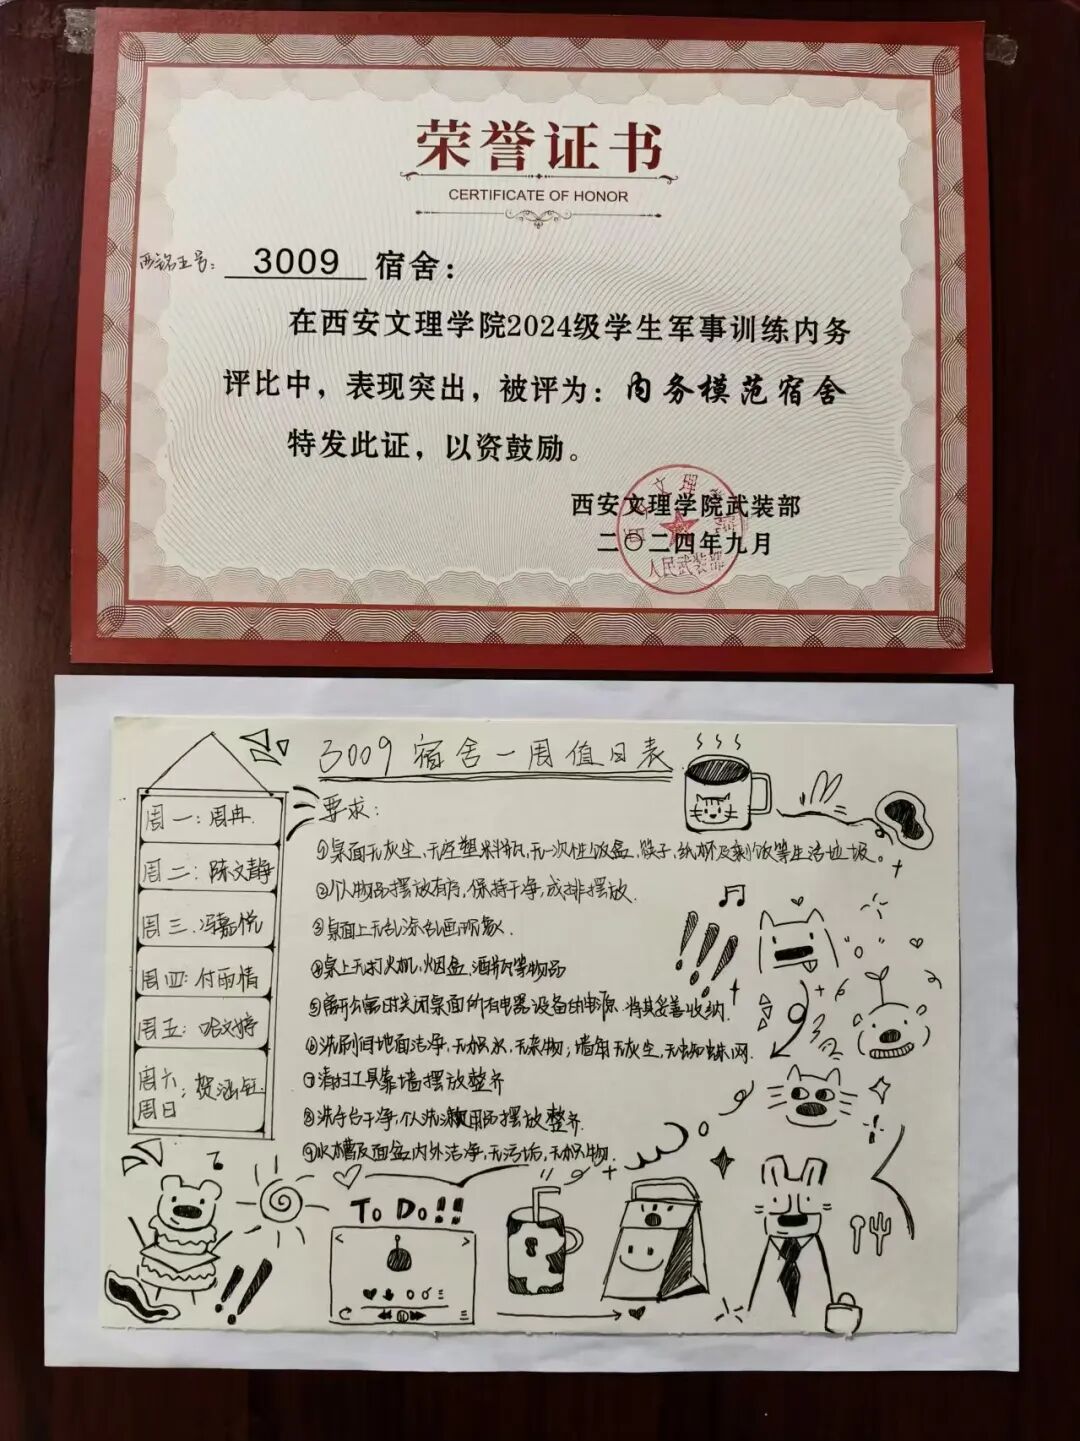 荣誉证书
CERTIFICATE OF HONOR
3009 宿舍：
在西安文理学院2024级学生军事训练内务
评比中，表现突出，被评为：内务模范宿舍
特发此证，以资鼓励。
西安文理学院武装部
二〇二四年九月
人民武装部
3009宿舍一周值日表
周一：周冉.
周二：陈文静
周三：冯嘉悦
周四：付雨情
周五：文婷
周六
周日：贺涵钰
要求：
①桌面无灰尘，无空塑料瓶，无一次性饭盒、筷子，纸杯及剩饭等生活垃圾。
②个人物品摆放有序，保持干净，成排摆放.
③桌面上无乱涂乱画现象.
④桌上无打火机，烟盒，酒瓶等物品
⑤离开宿舍时关闭桌面所有电器设备的电源，将其妥善收纳.
⑥洗刷间地面洁净，无积水，无杂物；墙角无灰尘，无蜘蛛网.
⑦清扫工具靠墙摆放整齐
⑧洗手台干净，个人洗漱用品摆放整齐.
⑨水槽及面盆内外洁净，无污垢，无积物.
To Do!!